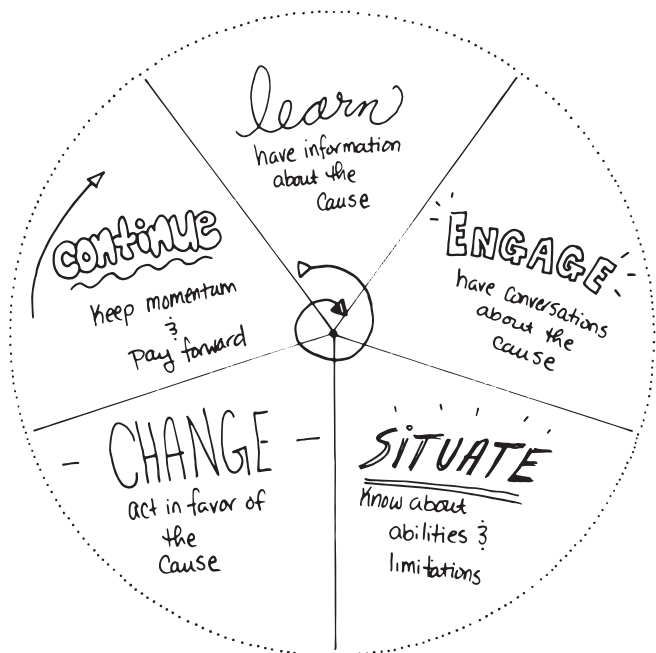 learn
have information
about the
cause
ENGAGE
have conversations
about the
cause
SITUATE
Know about
abilities &
limitations
CHANGE
act in favor of
the
cause
continue
Keep momentum
&
pay forward